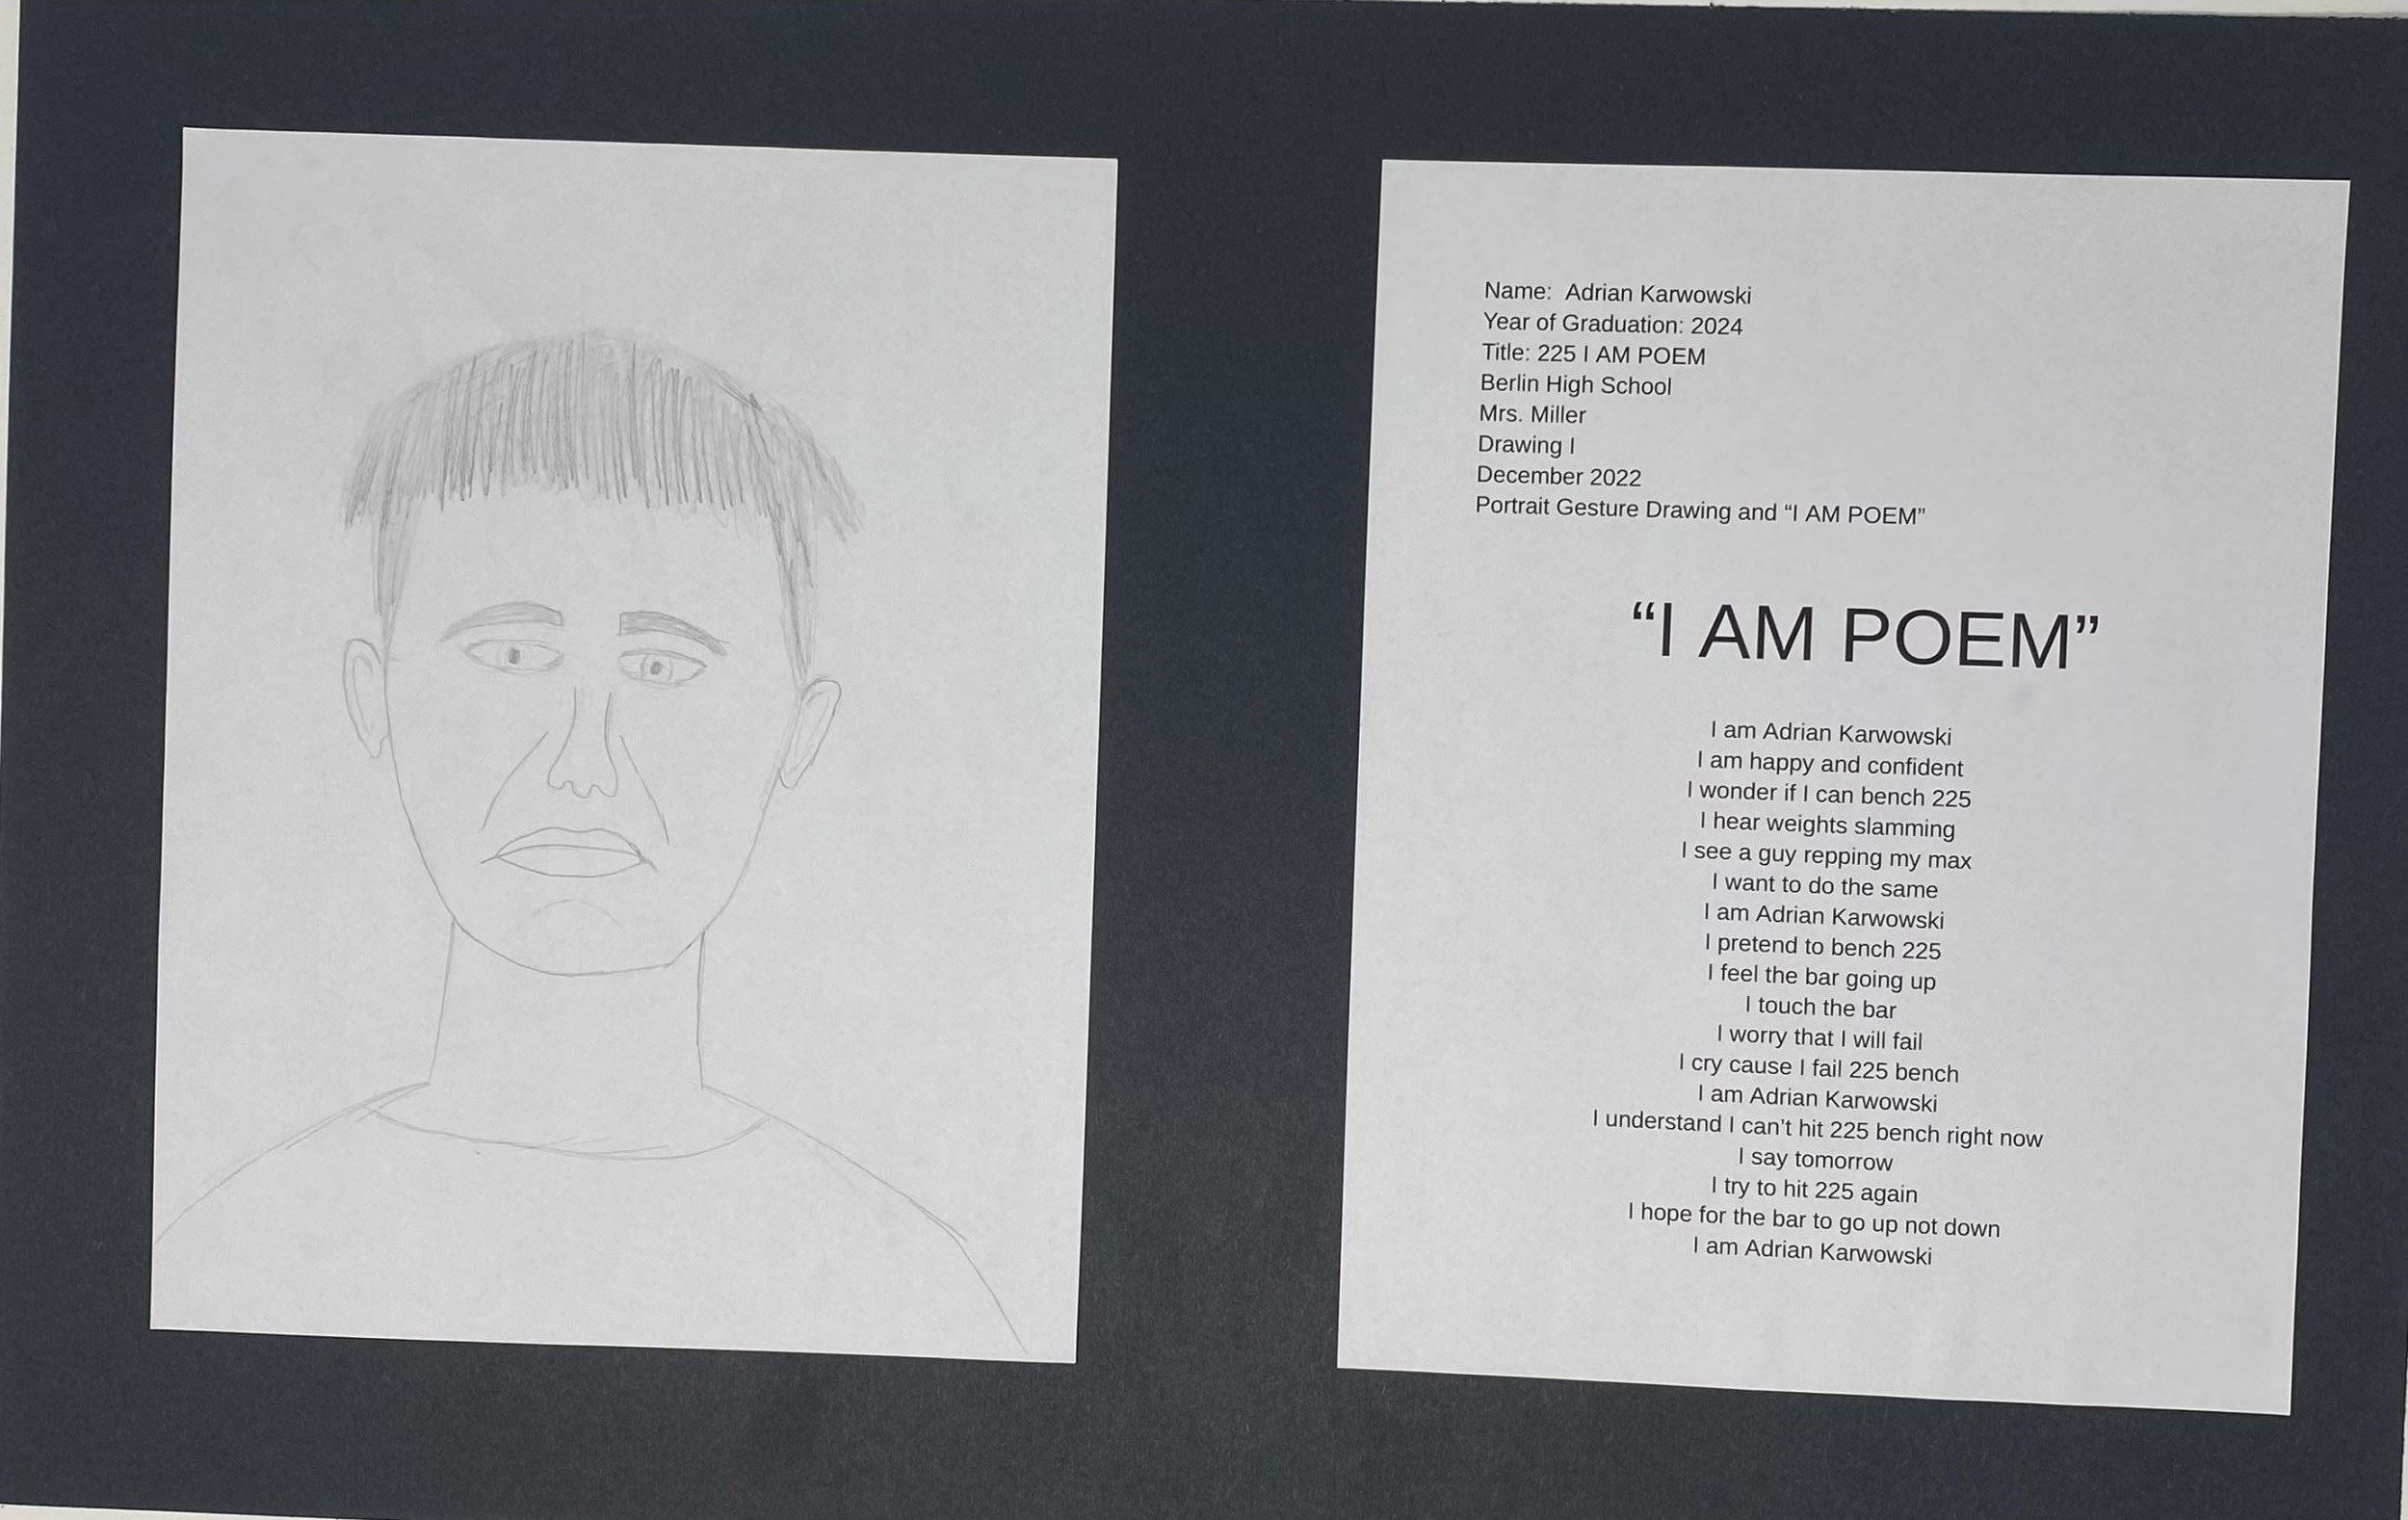 Name:  Adrian Karwowski
Year of Graduation: 2024
Title: 225 I AM POEM
Berlin High School
Mrs. Miller
Drawing I
December 2022
Portrait Gesture Drawing and “I AM POEM”
“I AM POEM”
I am Adrian Karwowski
I am happy and confident
I wonder if I can bench 225
I hear weights slamming
I see a guy repping my max
I want to do the same
I am Adrian Karwowski
I pretend to bench 225
I feel the bar going up
I touch the bar
I worry that I will fail
I cry cause I fail 225 bench
I am Adrian Karwowski
I understand I can’t hit 225 bench right now
I say tomorrow
I try to hit 225 again
I hope for the bar to go up not down
I am Adrian Karwowski